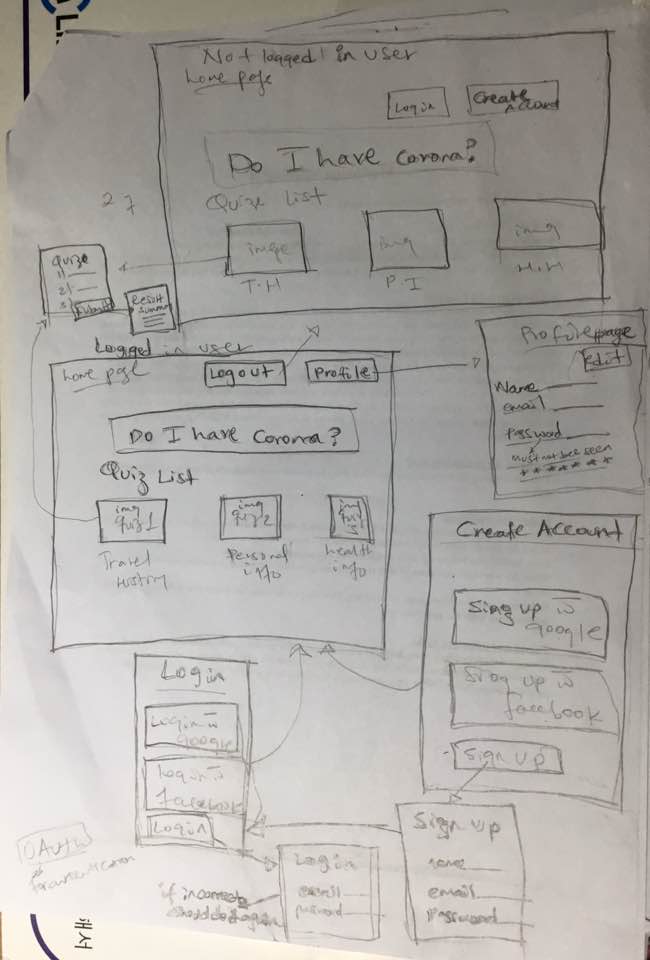 Not logged in user
home page
Login
Create Account
Do I have corona?
Quize List
image
img
img
T.H
P.I
H.H
27
Quize
1)
2)
3)
Submit
Result
Summary
Logged in user
home page
Logout
Profile
Do I have Corona?
Quiz List
img
quiz1
img
quiz2
img
quiz
3
Travel
History
Personal
info
health
info
Profile page
Edit
Name
email
Password
Must not bee seen
*******
Create Account
Sing up w
google
Sing up w
facebook
Sign up
Login
Login w
google
Login w
facebook
Login
Sign up
name
email
Password
Login
email
password
if incorrect
should do it again
OAuth
for authentication